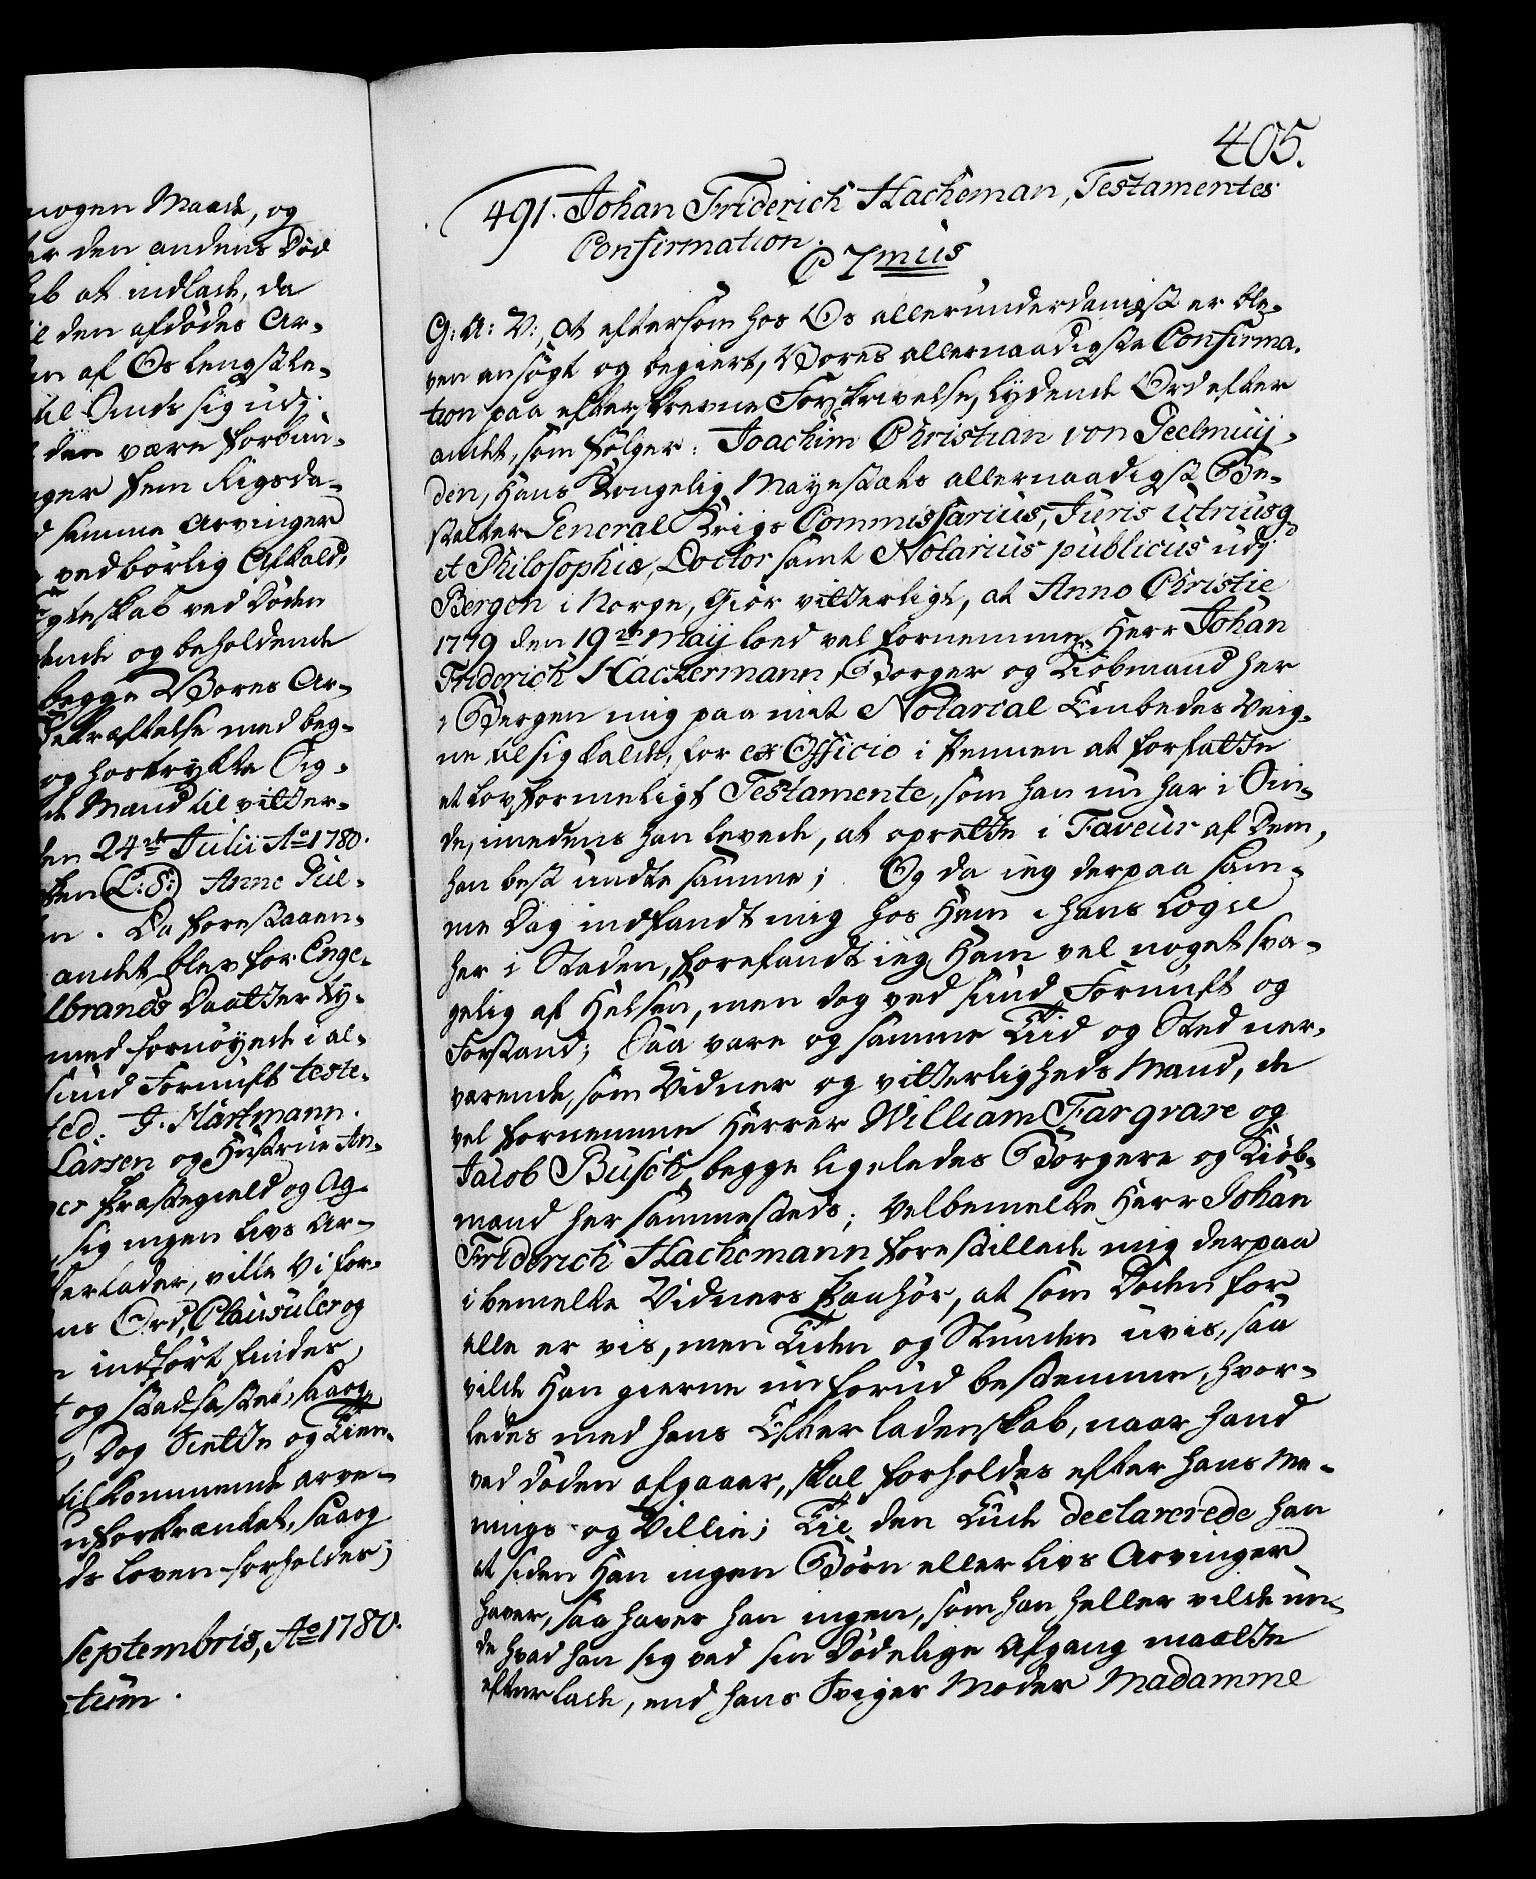 nogen Maade, og
er den andens Död
ab at indlade, da
il den afdödes Ar-
en af Os længstle-
til Ende sig udj
den være forbun-
nger fem Rigsda-
d samme Arvinger
vedbörlig Afkald;
Egteskab ved Döden
ende og beholdende
begge Vores Ar-
Bekræftelse med beg-
og hostrykte Sig-
de Mænd til vitter-
den 24de Julii Ao 1780.
sen (L: S:) Anne Piil-
n. Da forestaaen-
andet blev for Enge-
lbrands Daatter Ty-
med fornöyede i al-
sund Fornuft teste-
ted. J. Hartmann.
Larsen og Hustrue An-
Præstegield og Ag-
sig ingen Livs Ar-
terlader, ville Vi for-
ns Ord, Clausuler og
indfört findes,
og stadfæstet; saa og
Dog Siette og Tien-
tilkommende arve-
uforkrænket, saa og
ds Loven forholdes;
Septembris, Ao 1780.
tum.
405.
491. Johan Friderich Hacheman, Testamentes
Confirmation.
C 7mus
G: A: V:, at eftersom hos Os allerunderdanigst er ble-
ven ansögt og begiert, Vores allernaadigste Confirma-
tion paa efterskrevne Forskrivelse, lydende Ord efter
andet, som fölger: Joachim Christian von Geelmuÿ-
den, Hans Kongelig Mayestæts allernaadigst Be-
stalter General Krigs Commissarius, Juris utriusq
et Philosophiæ, Doctor samt Notarius publicus udj
Bergen i Norge, Giör vitterligt, at Anno Christie
1779 den 19de Maÿ lod vel fornemme Herr Johan
Friderich Hackermann, Borger og Kiöbmand her
i Bergen mig paa mit Notarial Embedes Veig-
ne til sig kalde, for ex Officio i Pennen at forfatte
et lovformeligt Testamente, som han nu har i Sin-
de, imedens han levede, at oprette i Faveur af Dem,
han best undte samme; Og da ieg derpaa sam-
me Dag indfandt mig hos Ham i hans Logie
her i Staden, forefandt ieg Ham vel noget sva-
gelig af Helsen, men dog ved sund Fornuft og
Forstand; Saa vare og samme Tiid og Sted nær-
værende, som Vidner og vitterligheds Mænd, de
vel fornemme Herrer William Fargrave og
Jacob Busch, begge ligeledes Borgere og Kiöb-
mænd her sammesteds; Velbemelte Herr Johan
Friderich Hachemann forestillede mig derpaa
i bemelte Vidners Paahör, at som Döden for
alle er vis, men Tiden og Stunden uvis, saa
vilde Han gierne nu forud bestemme, hvor-
ledes med hans Efterladenskab, naar hand
ved döden afgaaer, skal forholdes efter hans Me-
nings og Villie; Til den Ende declarerede han
at siden Han ingen Börn eller Livs Arvinger
haver, saa haver han ingen, som han heller vilde un-
de hvad han sig ved sin Dödelige Afgang maatte
efterlade, end hans Sviger Moder Madamme